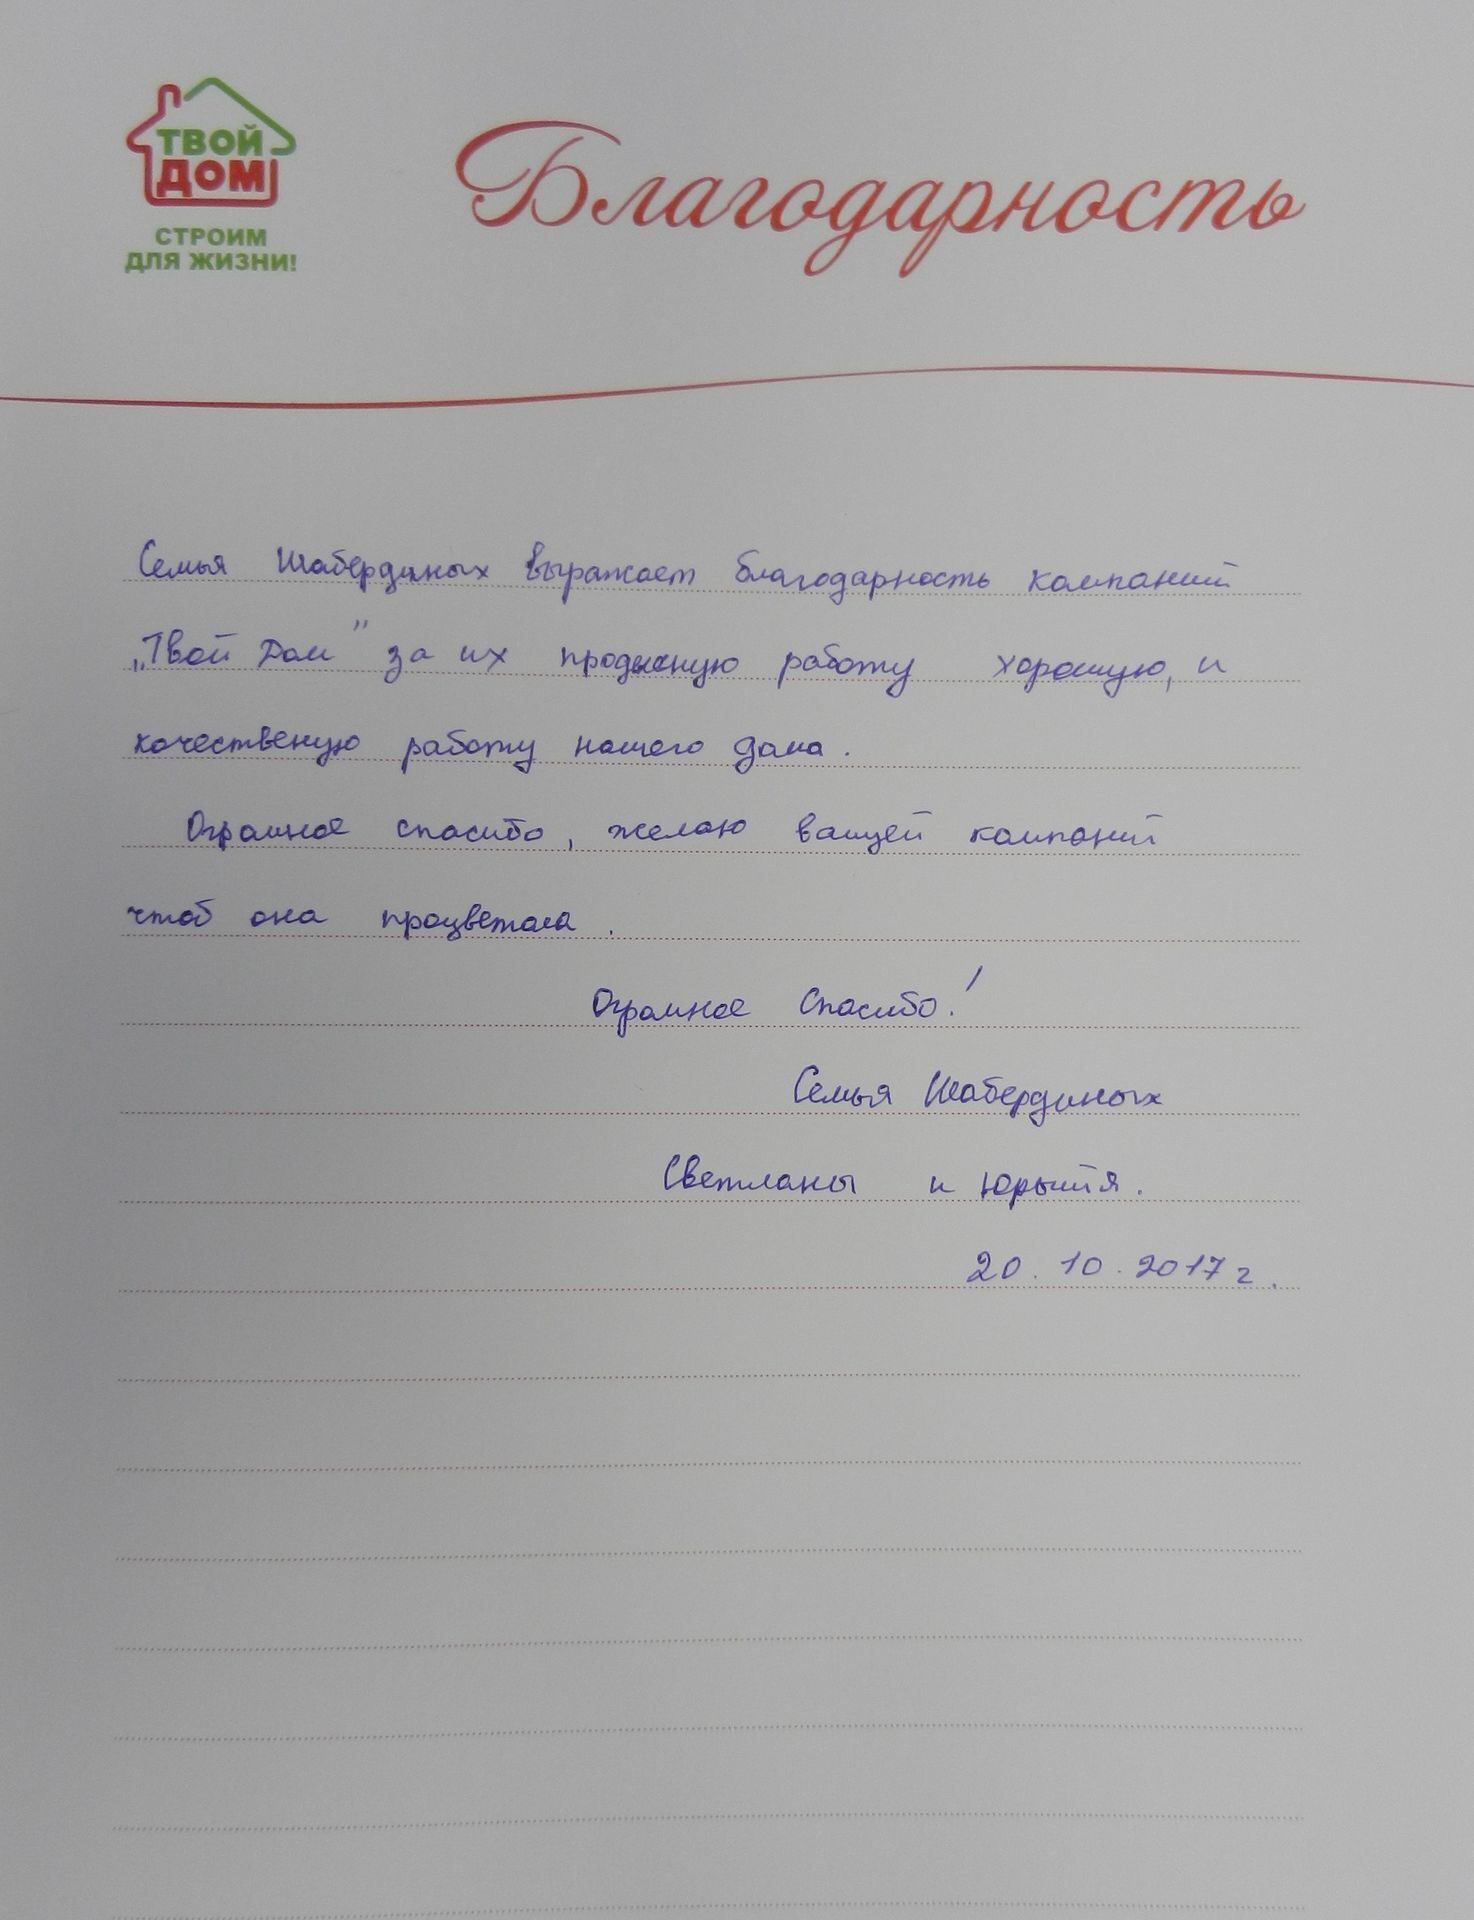 ТВОЙ
ДОМ
СТРОИМ
ДЛЯ ЖИЗНИ!
Благодарность
Семья Шабердиных выражает благодарность компаний
„Твой Дом" за их работу хорошую, и
качественую работу нашего дома.
Огромное спасибо, желаю вашей компаний
чтоб она процветала.
Огромное Спасибо!
Семья Шабердиных
Светланы и
20.10.2017г.